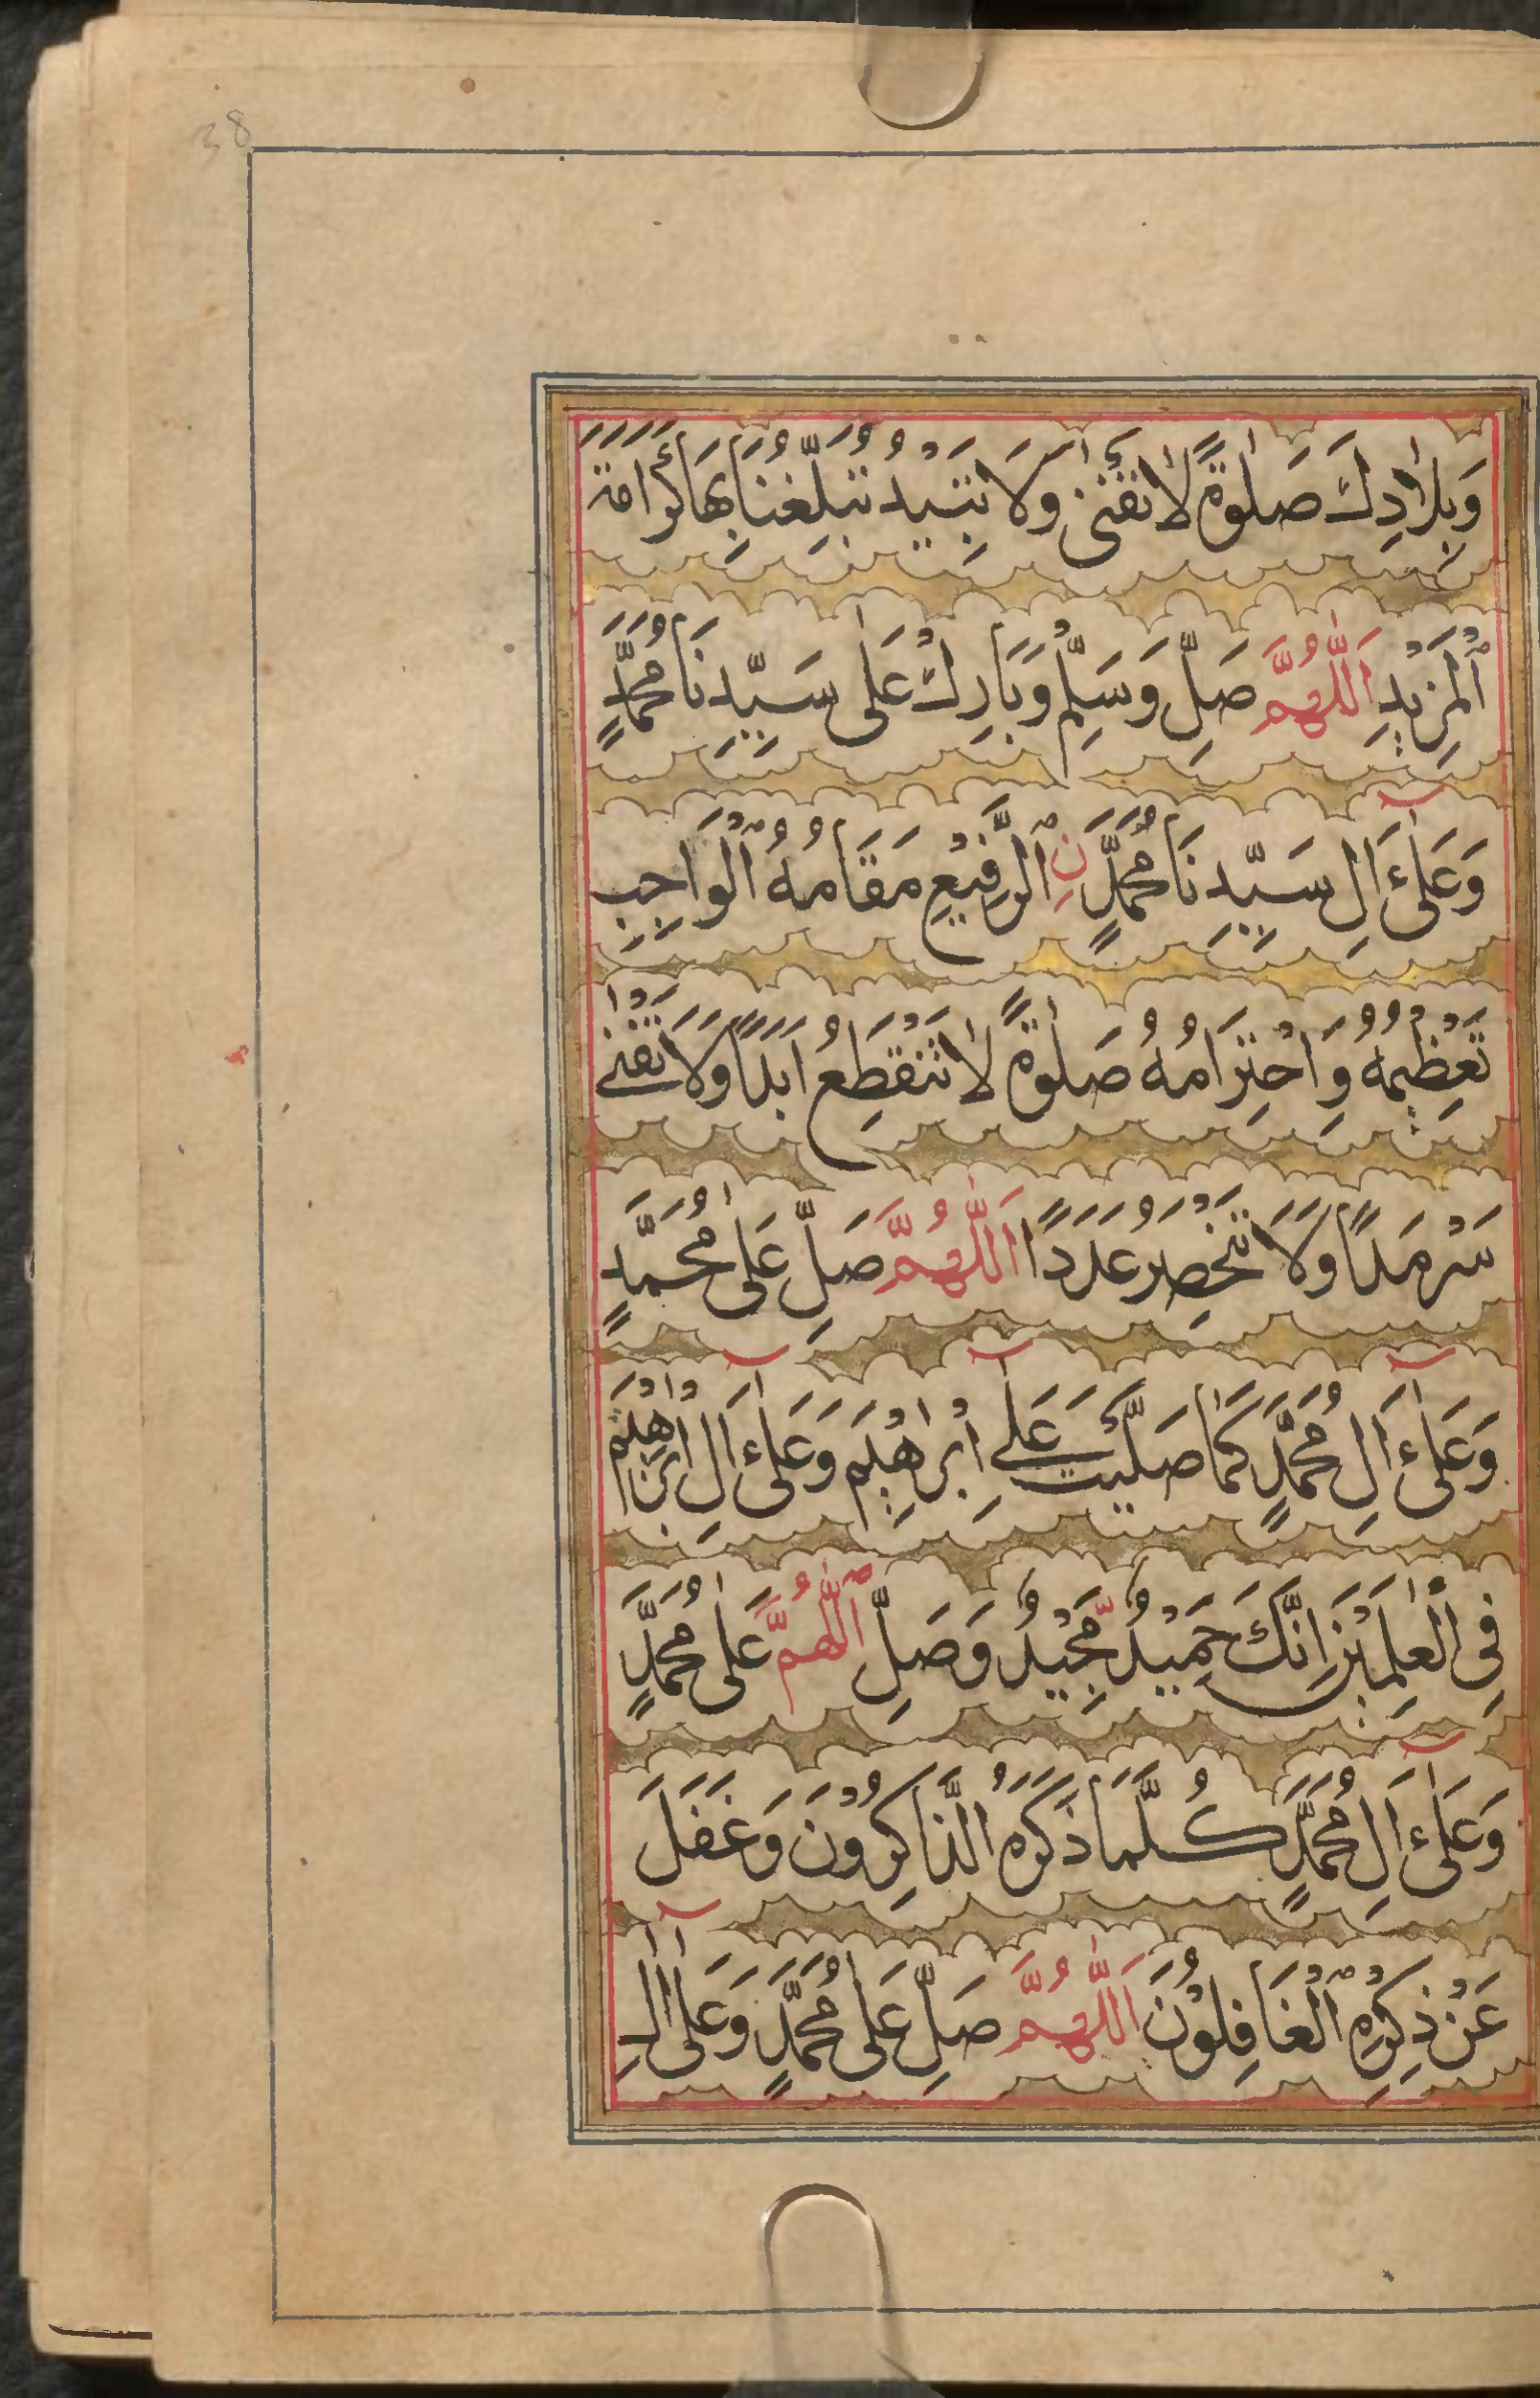 38
وَبِلَادِكَ صَلٰوةً لَا تَفْنٰى وَلَا تَبِيْدُ تُبَلِّغُنَا بِهَا كَرَامَةَ
الْمَزِيْدِ اَللّٰهُمَّ صَلِّ وَسَلِّمْ وَبَارِكْ عَلٰى سَيِّدِنَا مُحَمَّدٍ
وَعَلٰٓى اٰلِ سَيِّدِنَا مُحَمَّدٍ نِ الرَّفِيْعِ مَقَامُهُ الْوَاجِبِ
تَعْظِيْمُهُ وَاحْتِرَامُهُ صَلٰوةً لَا تَنْقَطِعُ اَبَدًا وَلَا تَفْنٰى
سَرْمَدًا وَلَا تَنْحَصِرُ عَدَدًا اَللّٰهُمَّ صَلِّ عَلٰى مُحَمَّدٍ
وَعَلٰٓى اٰلِ مُحَمَّدٍ كَمَا صَلَّيْتَ عَلٰٓى اِبْرٰهِيْمَ وَعَلٰٓى اٰلِ اِبْرٰهِيْمَ
فِى الْعٰلَمِيْنَ اِنَّكَ حَمِيْدٌ مَّجِيْدٌ وَصَلِّ اللّٰهُمَّ عَلٰى مُحَمَّدٍ
وَعَلٰٓى اٰلِ مُحَمَّدٍ كُلَّمَا ذَكَرَهُ الذَّاكِرُوْنَ وَغَفَلَ
عَنْ ذِكْرِهِ الْغَافِلُوْنَ اَللّٰهُمَّ صَلِّ عَلٰى مُحَمَّدٍ وَعَلٰٓى اٰلِ